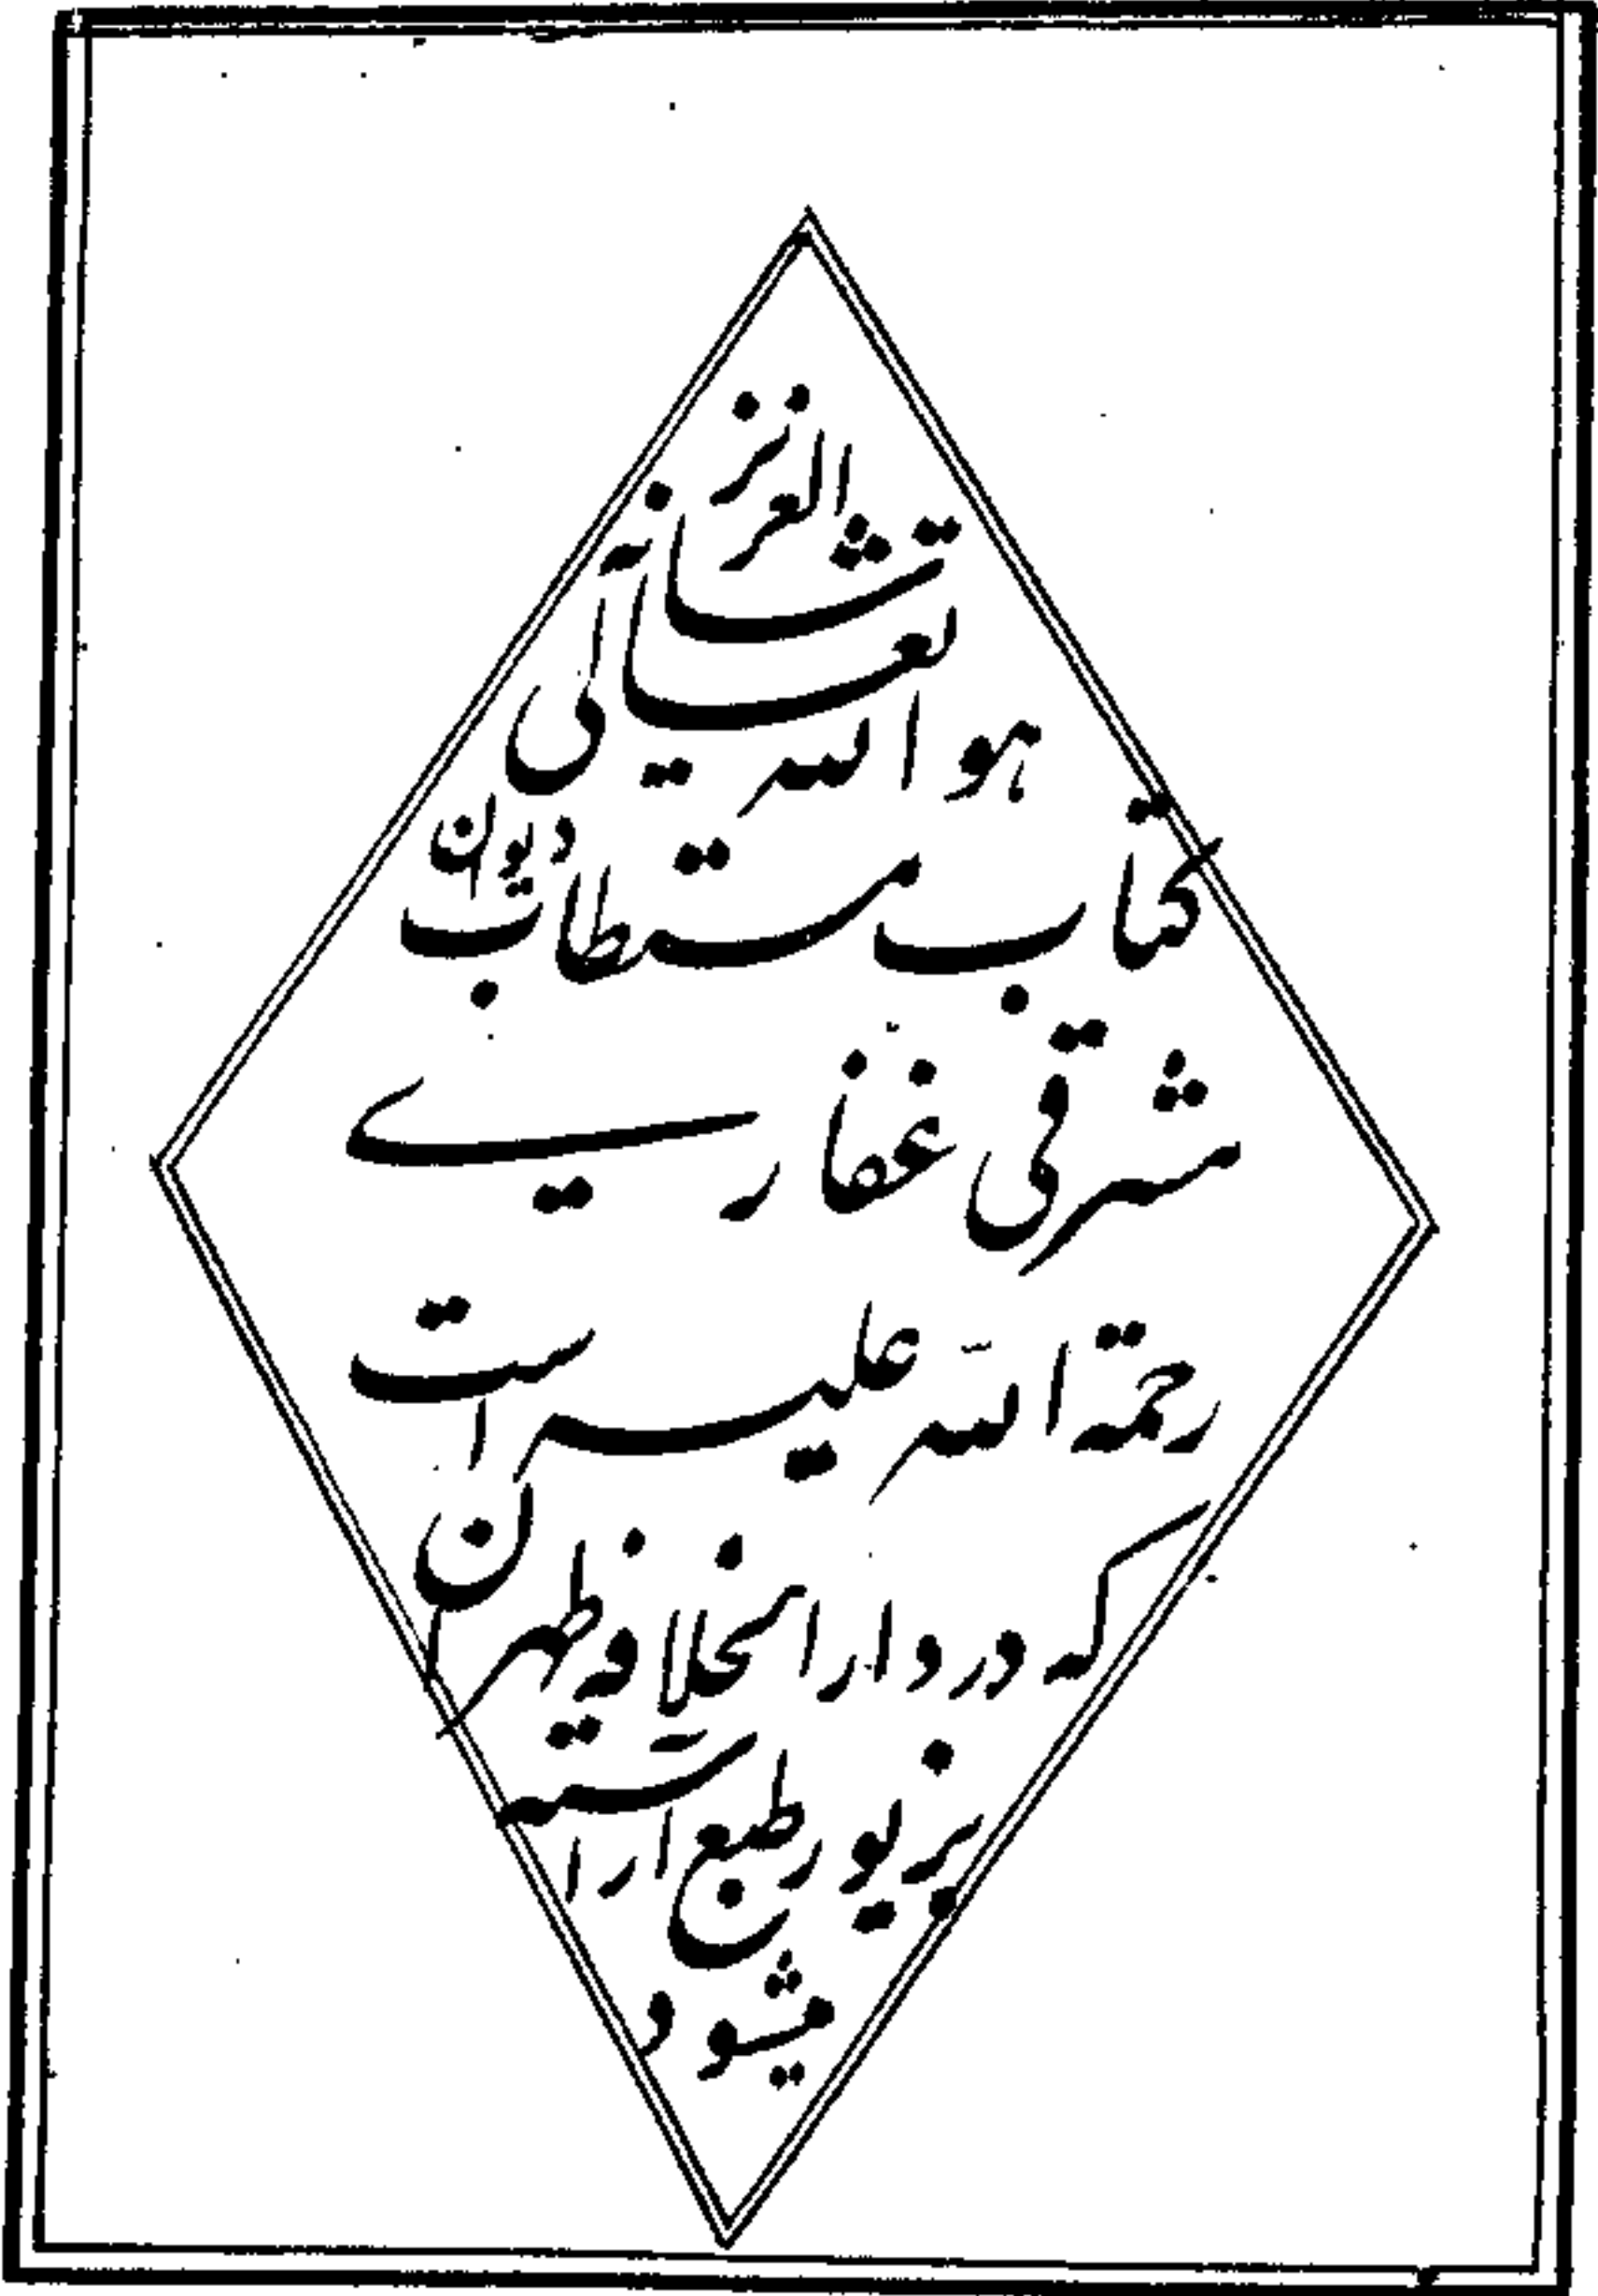 هو الله تعالی شانه العزیز
کتاب مستطاب دیوان
شرقی غفاری
رحمة الله علیه است
که در دارالخلافه طهران
بزیور طبع آراسته
میشود